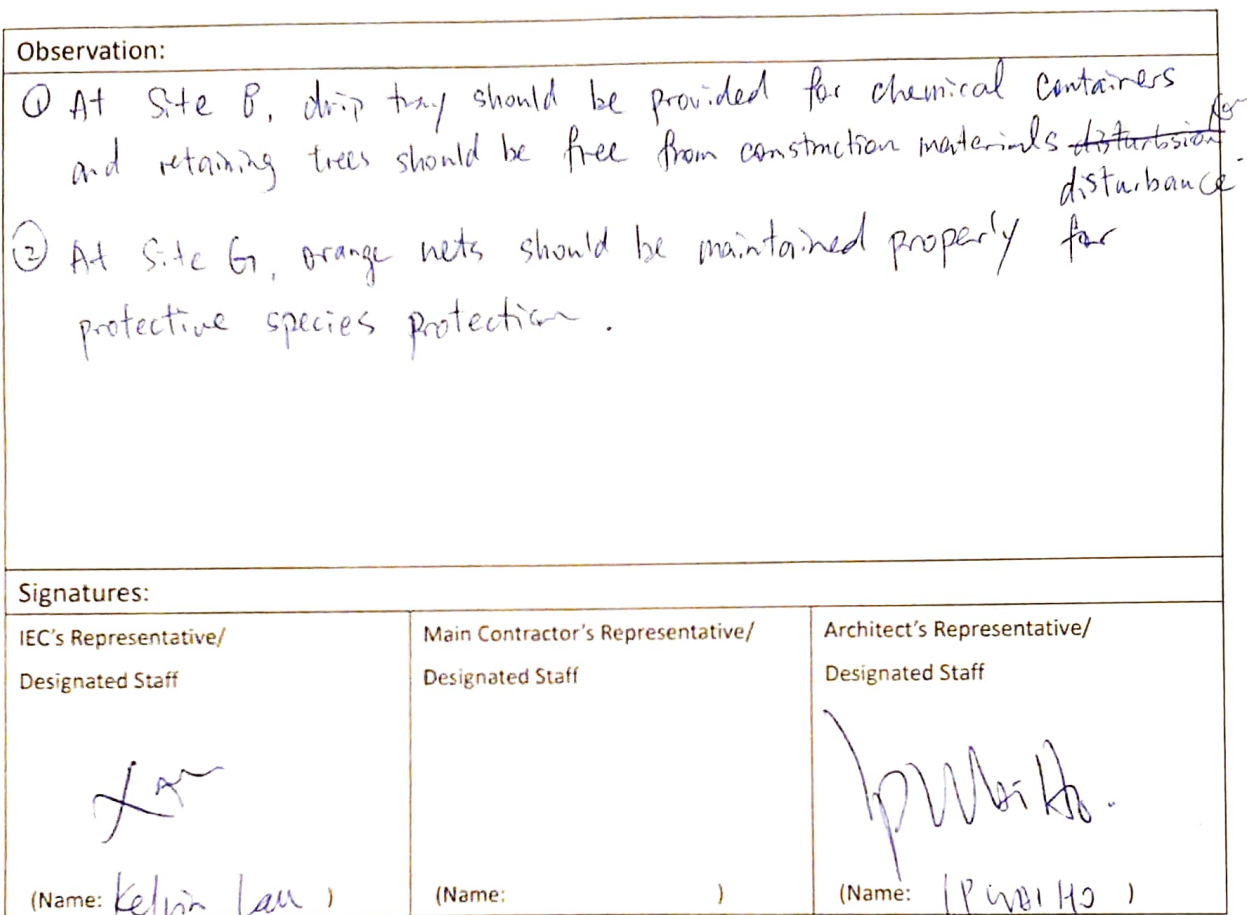 Observation:
① At Site B, drip tray should be provided for chemical containers
and retaining trees should be free from construction materials
disturbance.
② At Site G, orange nets should be maintained properly for
protective species protection.
Signatures:
IEC's Representative/
Designated Staff
Main Contractor's Representative/
Designated Staff
Architect's Representative/
Designated Staff
Lau
Ip Wai Ho.
(Name: Kelvin Lau )
(Name: )
(Name: IP WAI HO )